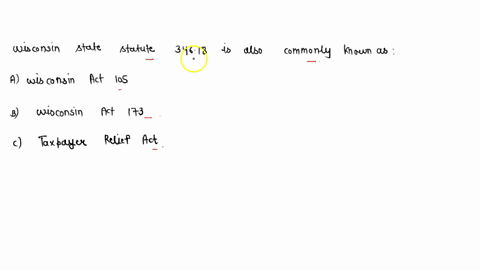 wisconsin state statute 346.18 is also commonly known as:
A) wisconsin Act 105
B) wisconsin Act 173
C) Taxpayer Relief Act